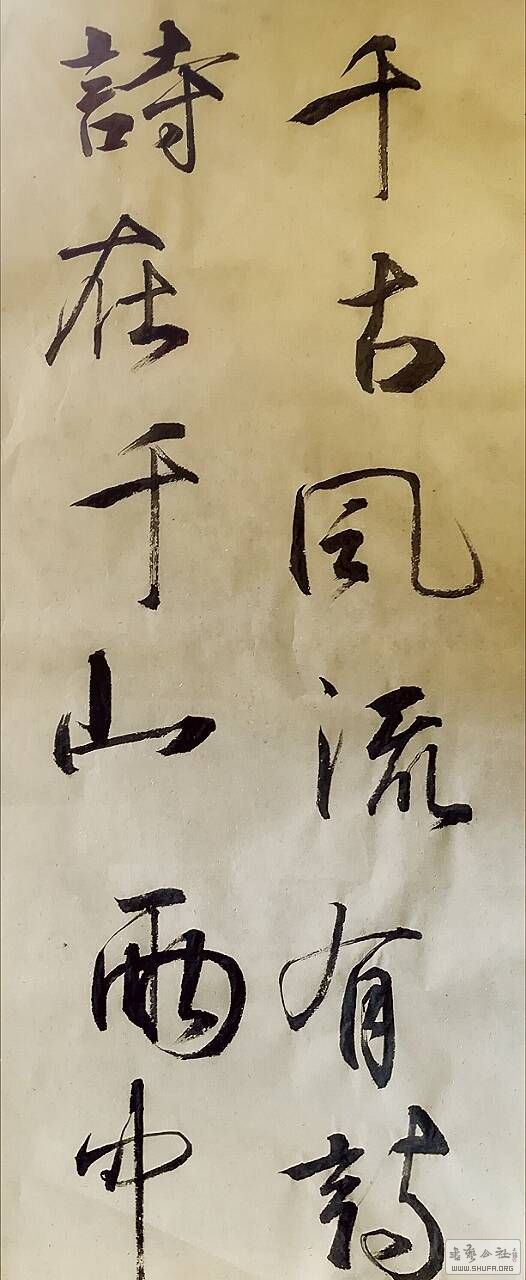 千古風流有韵
詩在千山雨中
書藝公社
WWW.SHUFA.ORG